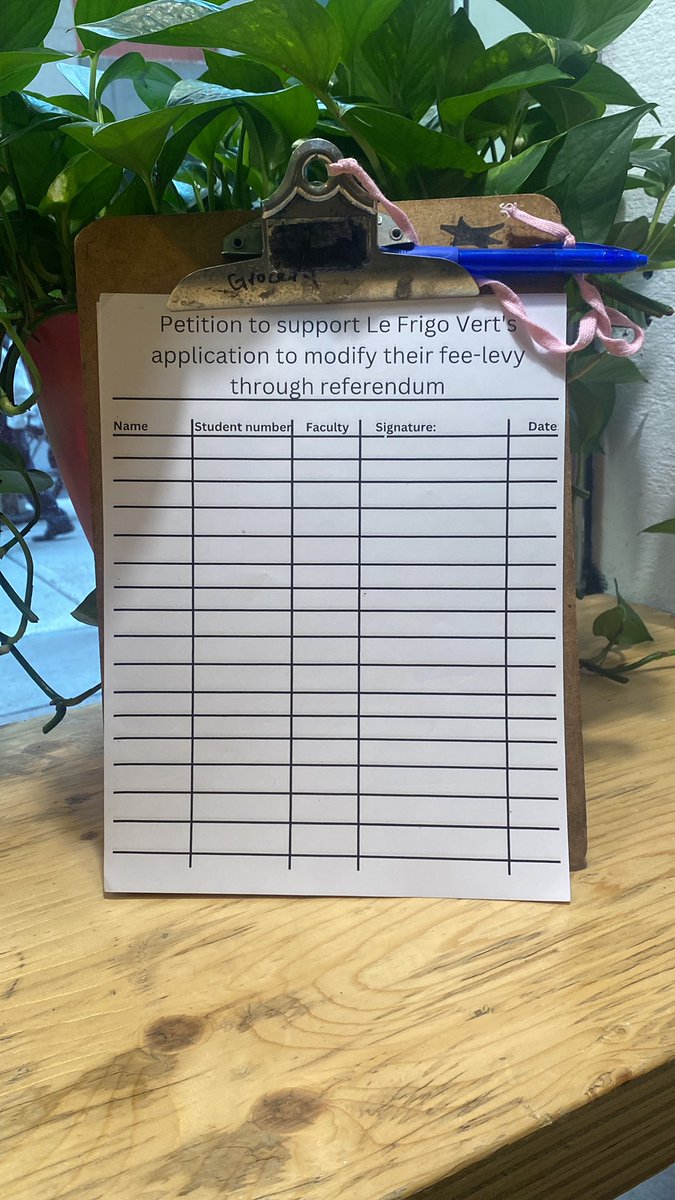 Petition to support Le Frigo Vert's
application to modify their fee-levy
through referendum
Name Student number Faculty Signature: Date